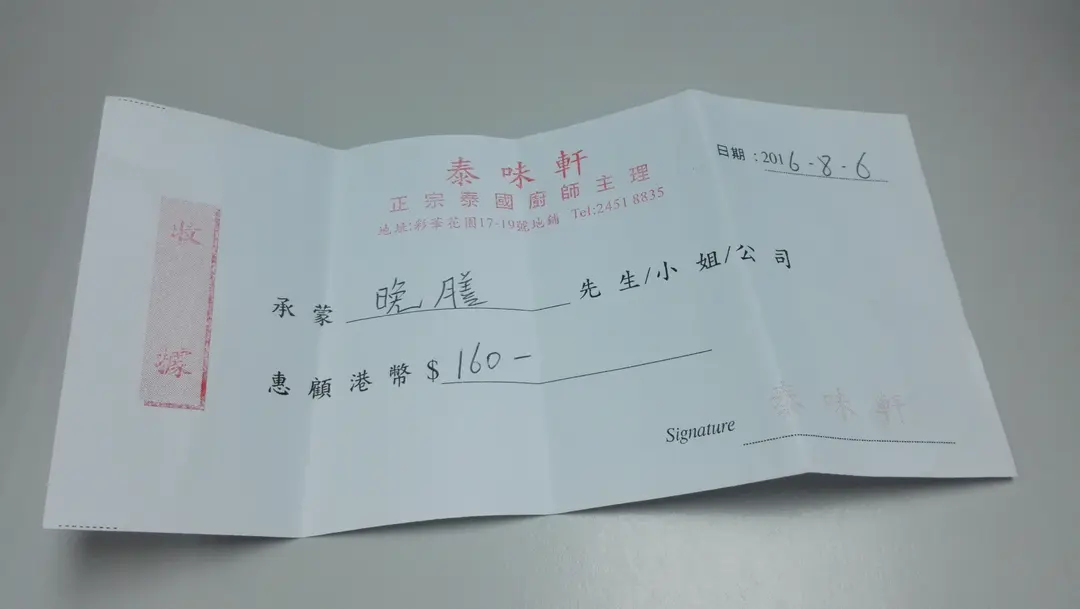 泰味軒
正宗泰國廚師主理
地址:彩華花園17-19號地鋪 Tel:2451 8835
日期:2016-8-6
收據
承蒙 晚膳 先生/小姐/公司
惠顧港幣$ 160-
Signature 泰味軒